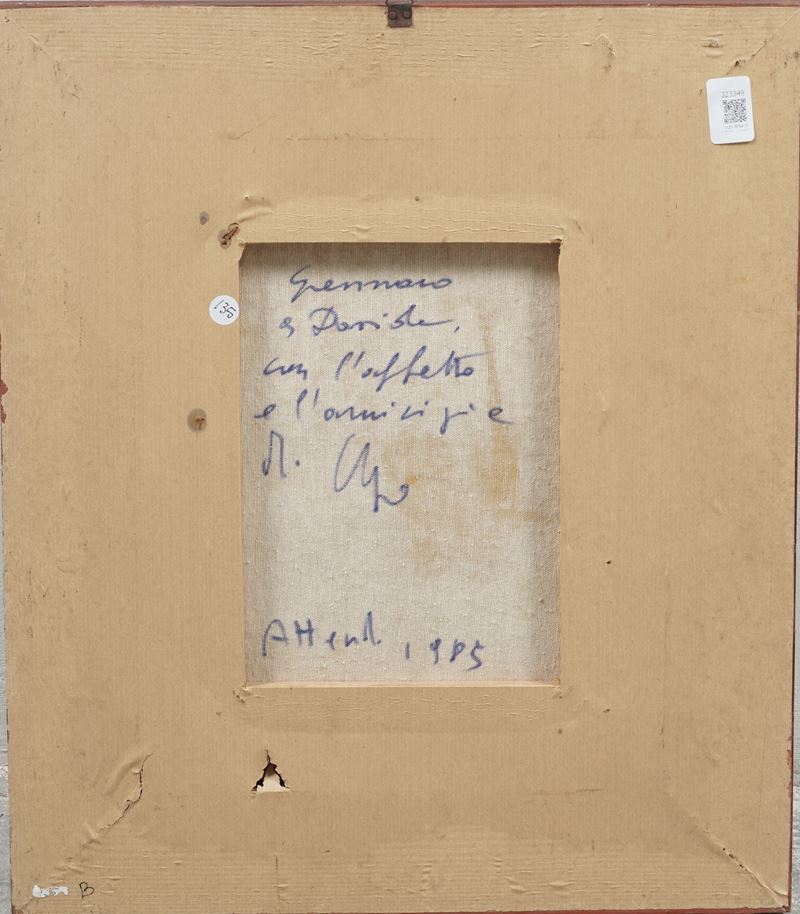 323349
135
Gennaro
a Davide,
con l'affetto
e l'amicizia
di Ugo
Attardi 1985
B